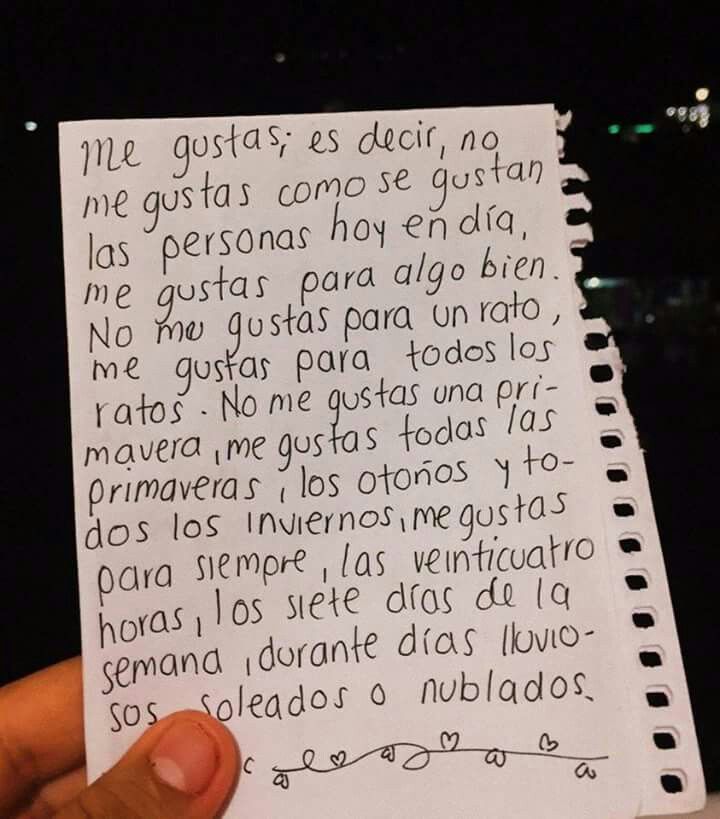 me gustas; es decir, no
me gustas como se gustan
las personas hoy en día,
me gustas para algo bien.
No me gustas para un rato,
me gustas para todos los
ratos. No me gustas una pri-
mavera, me gustas todas las
primaveras, los otoños y to-
dos los inviernos, me gustas
para siempre, las veinticuatro
horas, los siete días de la
semana, durante días lluvio-
sos, soleados o nublados.